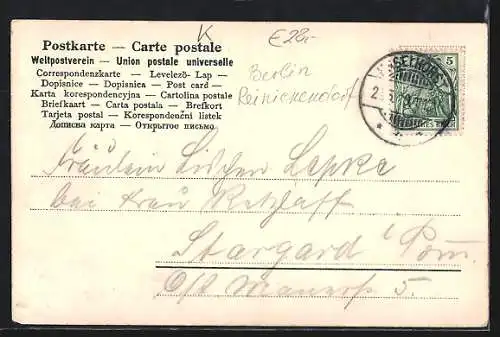 K
€22,-
Postkarte — Carte postale
Weltpostverein — Union postale universelle
Correspondenzkarte — Levelező-Lap —
Dopisnice — Dopisnica — Post card —
Karta korespondencyjna — Cartolina postale
Briefkaart — Carta postala — Brefkort
Tarjeta postal — Korespondenční listek
Дописна карта — Открытое письмо
Berlin
Reinickendorf
5
Fräulein Lepke
bei Frau Retzlaff
Stargard i/Pom.
5